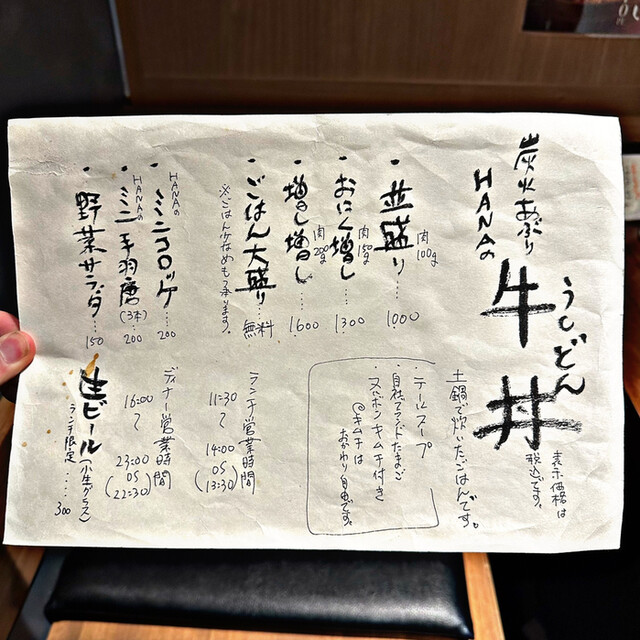 炭火あぶり
HANAの
牛丼
うしどん
表示価格は
税込です。
・並盛り 肉100g 1000
・おにく増し 肉150g …… 1300
・増し増し 肉200g …… 1600
・ごはん大盛り … 無料
※ごはん少なめも承ります。
HANAの
・ミニコロッケ … 200
HANAの
・ミニ手羽唐 (3本) … 200
・野菜サラダ … 150
土鍋で炊いたごはんです。
・テールスープ
・自社ブランドたまご
・スジポンキムチ付き
@キムチは
おかわり自由です。
ランチ営業時間
11:30
〜
14:00
OS
(13:30)
ディナー営業時間
16:00
〜
23:00
OS
(22:30)
生ビール (小生グラス)
ランチ限定 …… 300